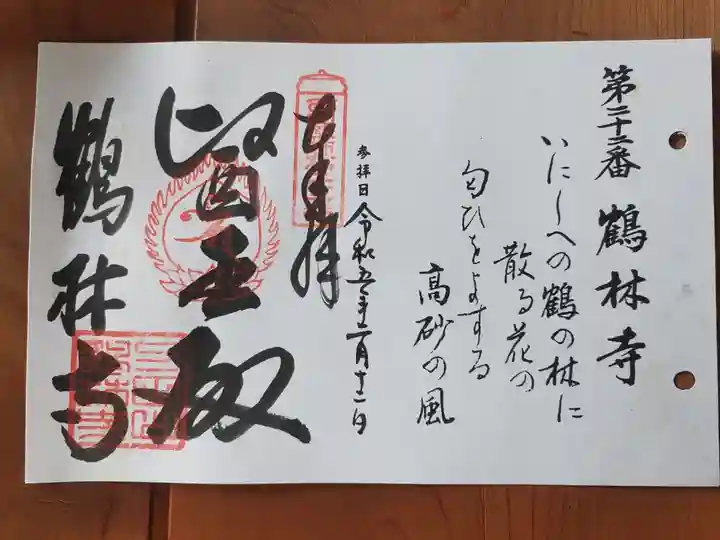 第二十二番 鶴林寺
いにしへの鶴の林に
散る花の
匂ひをよする
高砂の風
奉拝
参拝日 令和五年二月十二日
医王殿
鶴林寺